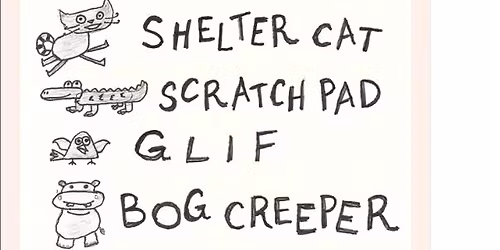 SHELTER CAT
SCRATCH PAD
GLIF
BOG CREEPER